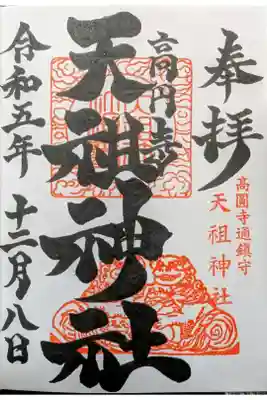 奉拝
高圓寺通鎮守
天祖神社
高円寺
天祖神社
令和五年 十二月八日